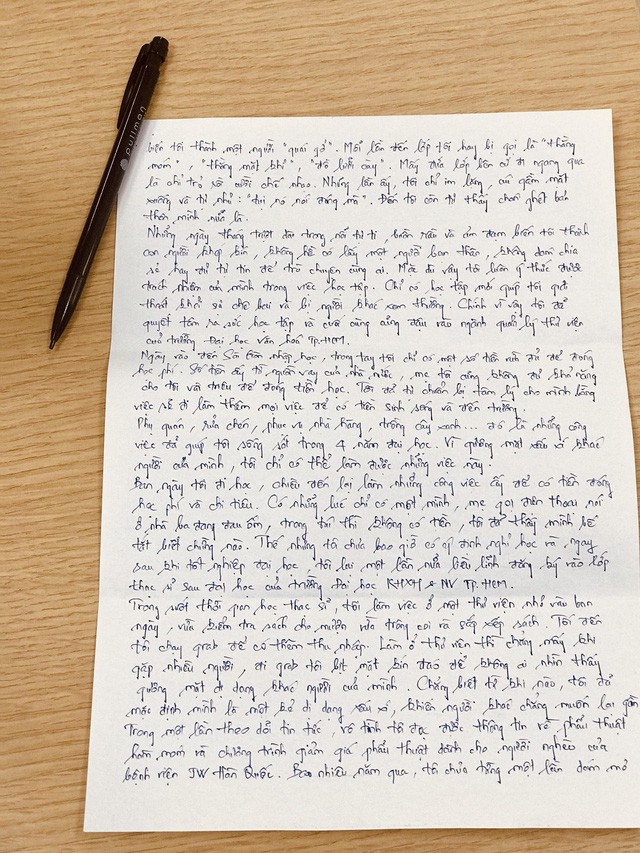 pullman
biến tôi thành một người "quái gở". Mỗi lần đến lớp tôi hay bị gọi là "thằng
móm", "thằng mặt khỉ", "đồ lưỡi cày". Mấy đứa lớp bên cứ đi ngang qua
là chỉ trỏ và cười chế nhạo. Những lần ấy, tôi chỉ im lặng, cúi gằm mặt
xuống và tự nhủ: "tụi nó nói đúng mà". Đến tôi còn tự thấy chán ghét bản
thân mình nữa là.
Những ngày tháng triệt dài trong nỗi tự ti, buồn rầu và ảm đạm biến tôi thành
con người khép kín, không hề có lấy một người bạn thân, không dám chia
sẻ hay đủ tự tin để trò chuyện cùng ai. Mặc dù vậy tôi luôn ý thức được
trách nhiệm của mình trong việc học tập. Chỉ có học tập mới giúp tôi
thoát khỏi sự chê bai và bị người khác xem thường. Chính vì vậy tôi đã
quyết tâm ra sức học tập và cuối cùng cũng đậu vào ngành quản lý thư viện
của trường Đại học văn hoá TP.HCM.
Ngày vào đến Sài Gòn nhập học, trong tay tôi chỉ có một số tiền nhỏ đủ để đóng
học phí. Số tiền ấy từ nguồn vay của nhà nước, mẹ tôi cũng không đủ khả năng
cho tôi vài triệu để đóng tiền học. Tôi đã tự chuẩn bị tâm lý cho mình bằng
việc sẽ đi làm thêm mọi việc để có tiền sinh sống và đến trường.
Phụ quán, rửa chén, phục vụ nhà hàng, trồng cây xanh... đó là những công
việc đã giúp tôi sống sót trong 4 năm đại học. Vì gương mặt xấu xí khác
người của mình, tôi chỉ có thể làm được những việc này.
Ban ngày tôi đi học, chiều đến lại làm những công việc ấy để có tiền đóng
học phí và chi tiêu. Có những lúc chỉ có một mình, mẹ gọi điện thoại nói
ở nhà ba đang đau ốm, trong túi thì không có tiền, tôi đã thấy mình bế
tắt biết chừng nào. Thế nhưng tôi chưa bao giờ có ý định nghỉ học và ngay
sau khi tốt nghiệp đại học, tôi lại một lần nữa liều lĩnh đăng ký vào lớp
thạc sĩ sau đại học của trường Đại học KHXH & NV TP.HCM.
Trong suốt thời gian học thạc sĩ, tôi làm việc ở một thư viện nhỏ vào ban
ngày, vừa kiểm tra sách cho mượn vừa trông coi và sắp xếp sách. Tối đến
tôi chạy grab để có thêm thu nhập. Làm ở thư viện thì chẳng mấy khi
gặp nhiều người, đi grab tôi bịt mặt kín đáo để không ai nhìn thấy
gương mặt dị dạng khác người của mình. Chẳng biết từ khi nào, tôi đã
mặc định mình là một kẻ dị dạng xấu xí, khiến người khác chẳng muốn lại gần
Trong một lần theo dõi tin tức, vô tình tôi đọc được thông tin về phẫu thuật
hàm móm và chương trình giảm giá phẫu thuật dành cho người nghèo của
bệnh viện JW Hàn Quốc. Bao nhiêu năm qua, tôi chưa từng một lần dám mơ